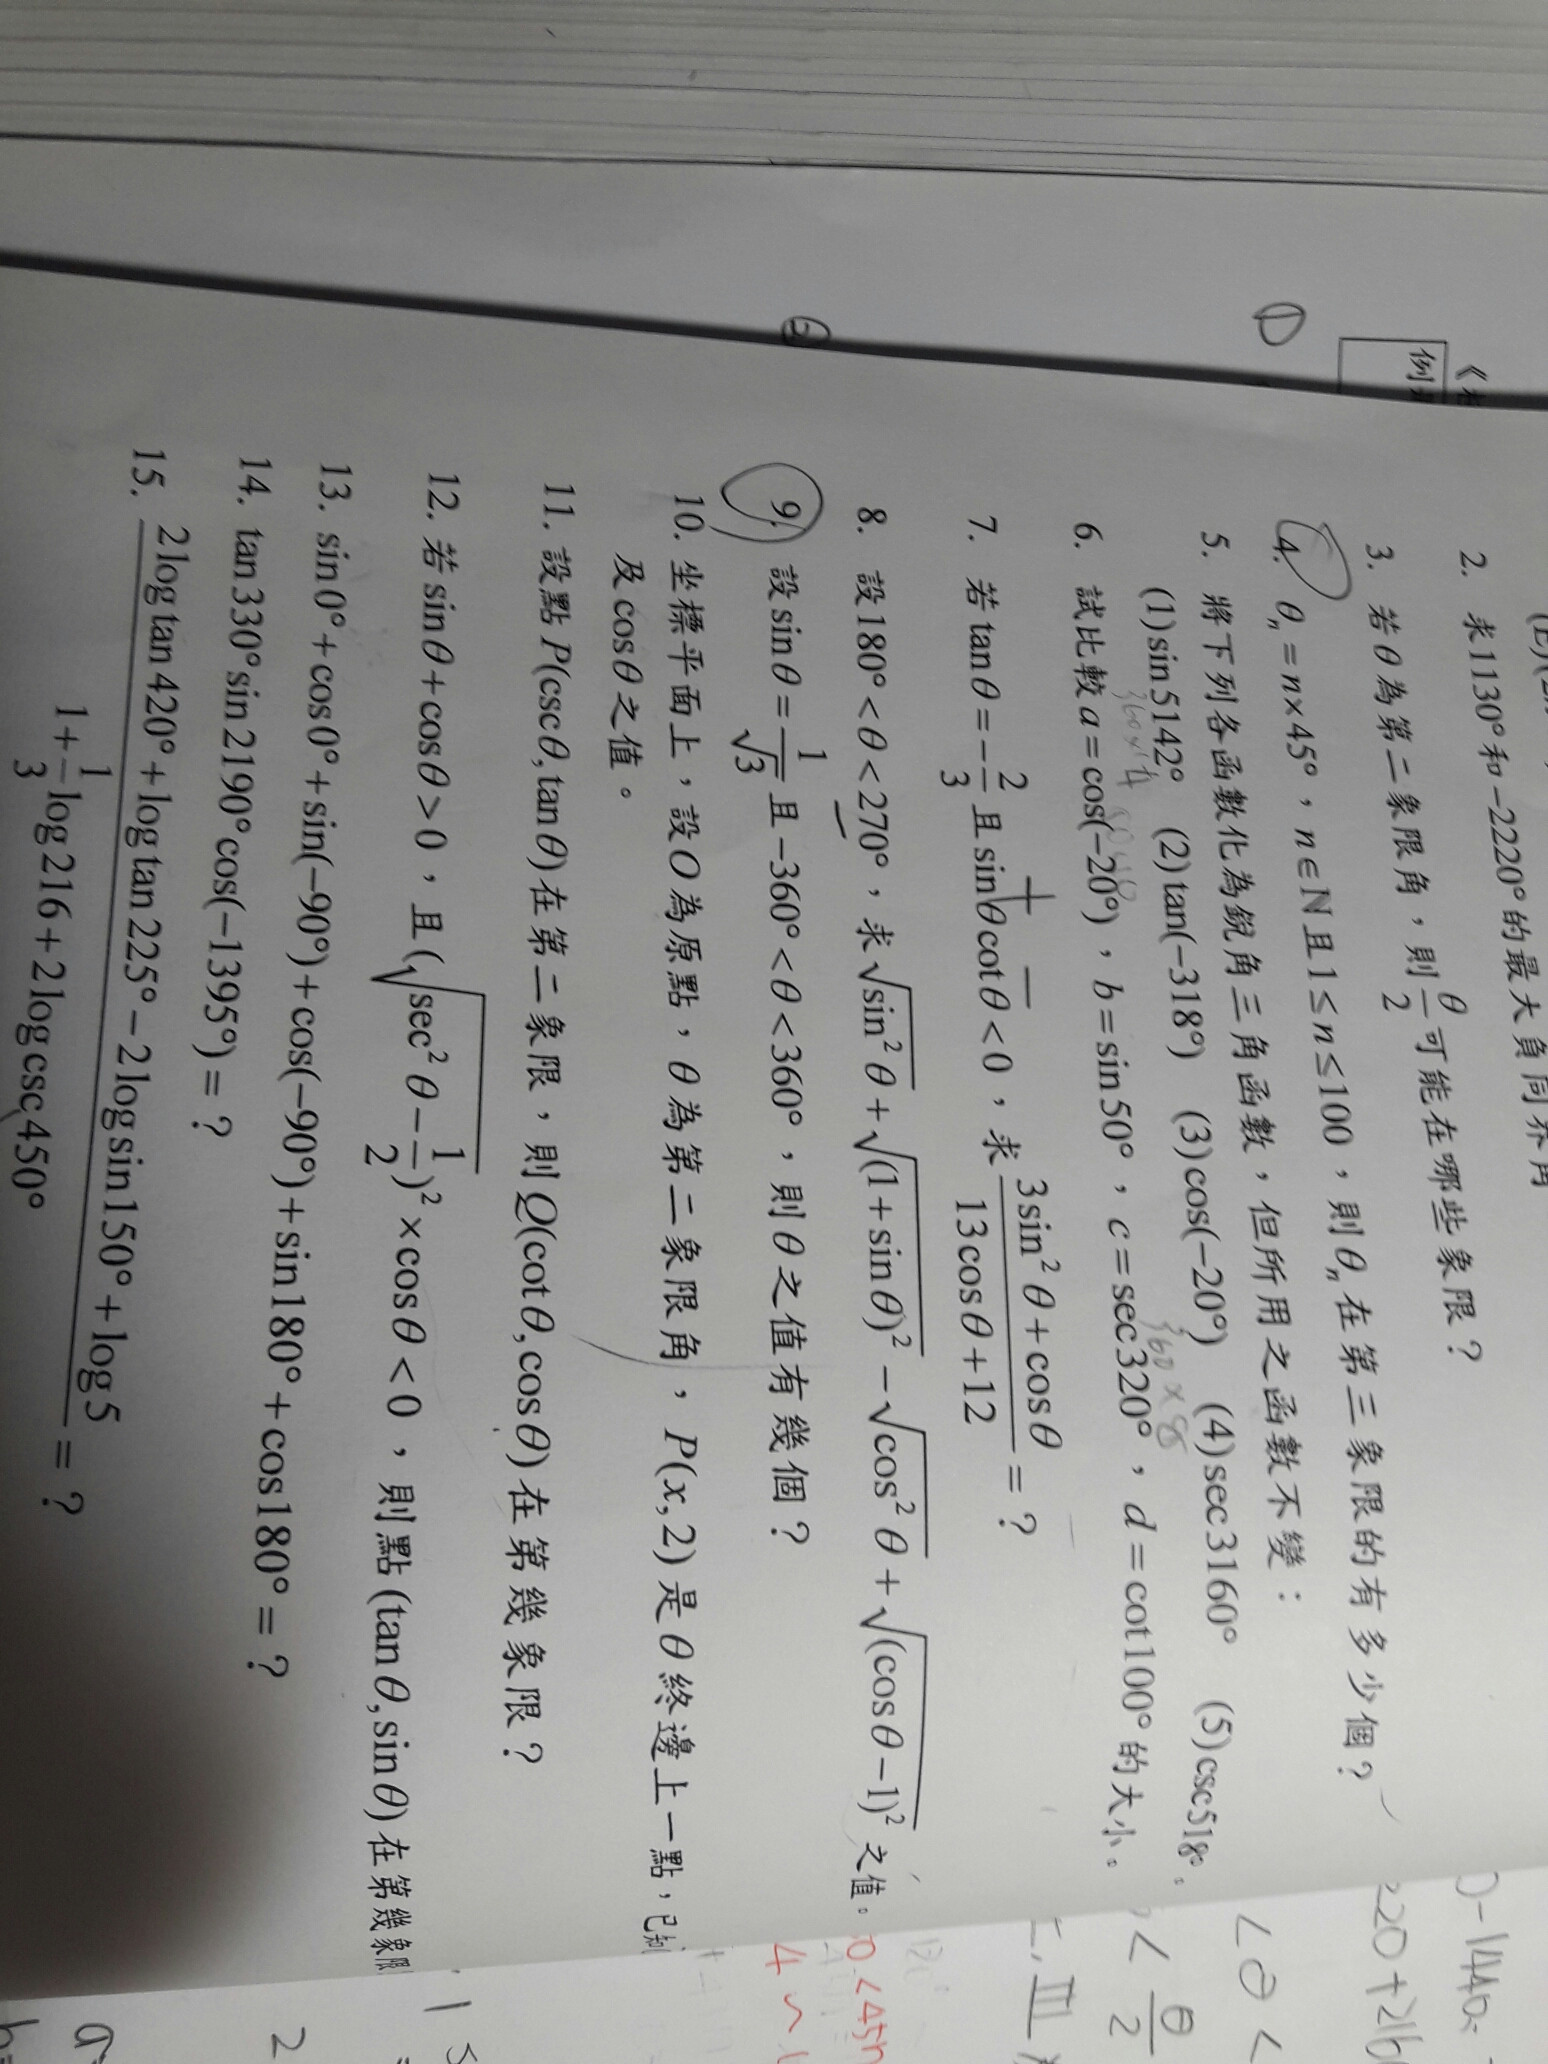 2. 求1130°和−2220°的最大負同界角
3. 若θ為第二象限角，則θ/2可能在哪些象限？
4. θₙ=n×45°，n∈ℕ且1≤n≤100，則θₙ在第三象限的有多少個？
5. 將下列各函數化為銳角三角函數，但所用之函數不變：
(1)sin5142° (2)tan(−318°) (3)cos(−20°) (4)sec3160° (5)csc518°。
6. 試比較a=cos(−20°)，b=sin50°，c=sec320°，d=cot100°的大小。
7. 若tanθ=−2/3且sinθcotθ<0，求(3sin²θ+cosθ)/(13cosθ+12)=？
8. 設180°<θ<270°，求√(sin²θ)+√((1+sinθ)²)−√(cos²θ)+√((cosθ−1)²)之值。
9. 設sinθ=1/√3且−360°<θ<360°，則θ之值有幾個？
10. 坐標平面上，設O為原點，θ為第二象限角，P(x,2)是θ終邊上一點，已知
及cosθ之值。
11. 設點P(cscθ,tanθ)在第二象限，則Q(cotθ,cosθ)在第幾象限？
12. 若sinθ+cosθ>0，且(√(sec²θ−1/2))²×cosθ<0，則點(tanθ,sinθ)在第幾象限
13. sin0°+cos0°+sin(−90°)+cos(−90°)+sin180°+cos180°=？
14. tan330°sin2190°cos(−1395°)=？
15. (2logtan420°+logtan225°−2logsin150°+log5)/(1+1/3log216+2logcsc450°)=？